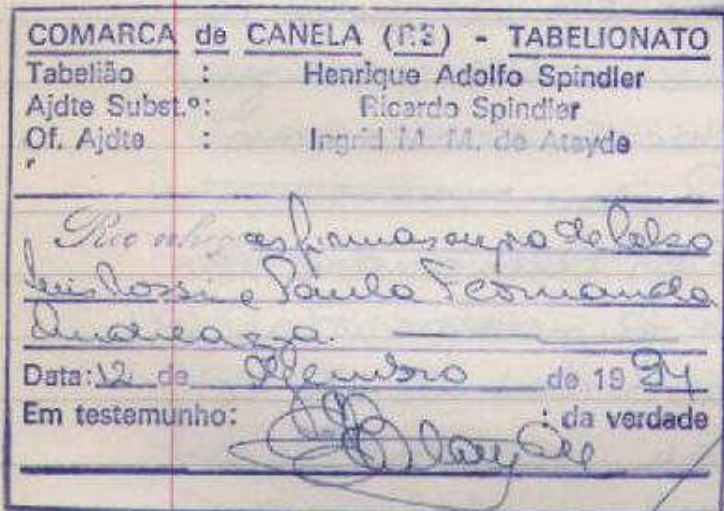 COMARCA de CANELA (RS) - TABELIONATO
Tabelião : Henrique Adolfo Spindler
Ajdte Subst.º: Ricardo Spindler
Of. Ajdte : Ingrid M. M. de Atayde
Reconheço as firmas supra de Celso
Luis Rossi e Paulo Fernando
Andreazza.
Data: 12 de de 19 94
Em testemunho: : da verdade